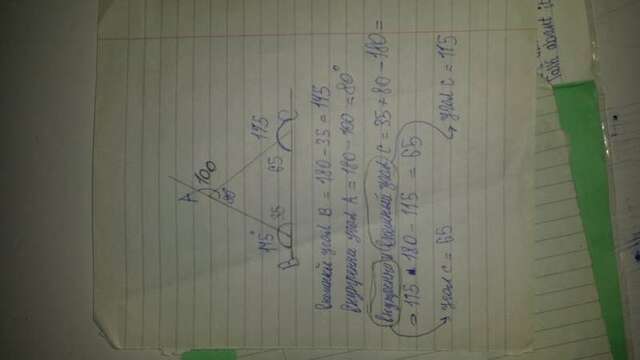 A
100
80
145°
35
65
115
B
C
Внешний угол B = 180 - 35 = 145
Внутренний угол A = 180 - 100 = 80°
Внутренно Внешний угол C = 35 + 80 - 180 =
= 115 180 - 115 = 65
угол C = 65
угол C = 115
Talk about